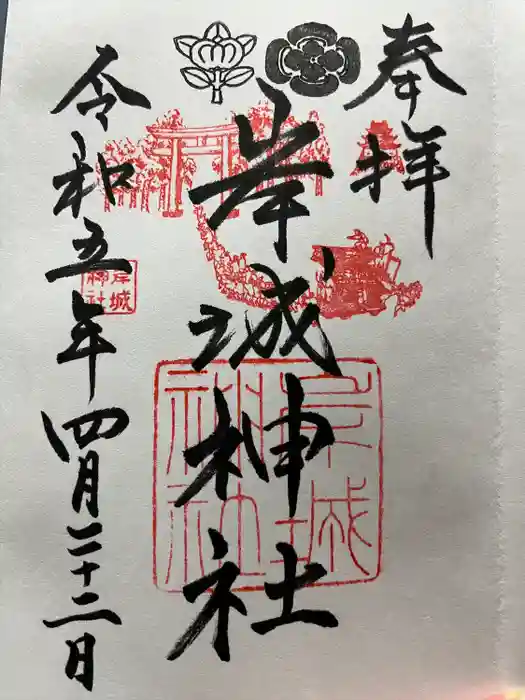 奉拝
岸城神社
令和五年四月二十二日
岸城
神社
岸城
神社